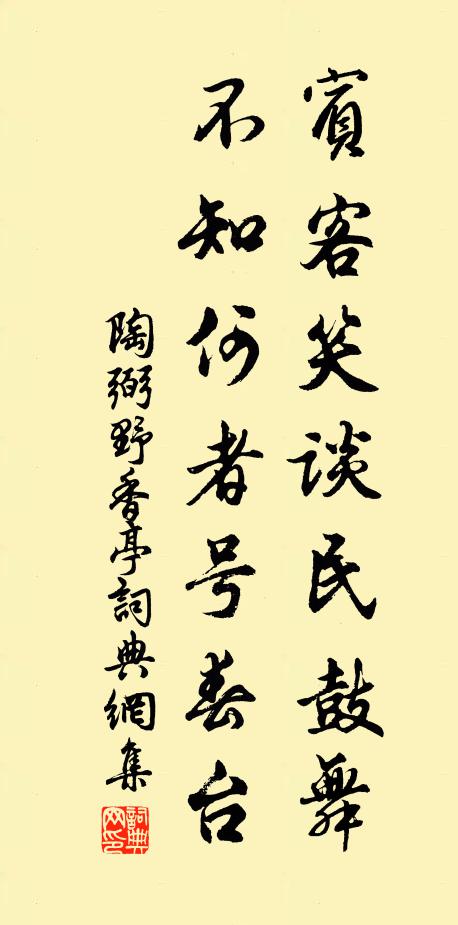 賓客笑談民鼓舞
不知何者号春台
陶弼野香亭詞典網集
詞典網印